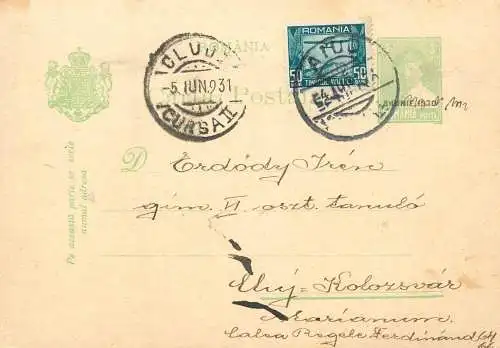 ROMÂNIA
CLUJ
-5 IUN.931
CURSA II
ROMANIA
50 TIMBRUL AVIATIEI 50
AIUD
8 IUNIE 1930
Pe aceasta parte se scrie
numai adresa
D Erdődy Irén
gim. VI oszt. tanuló
Cluj-Kolozsvár
Marianum
Calea Regele Ferdinánd